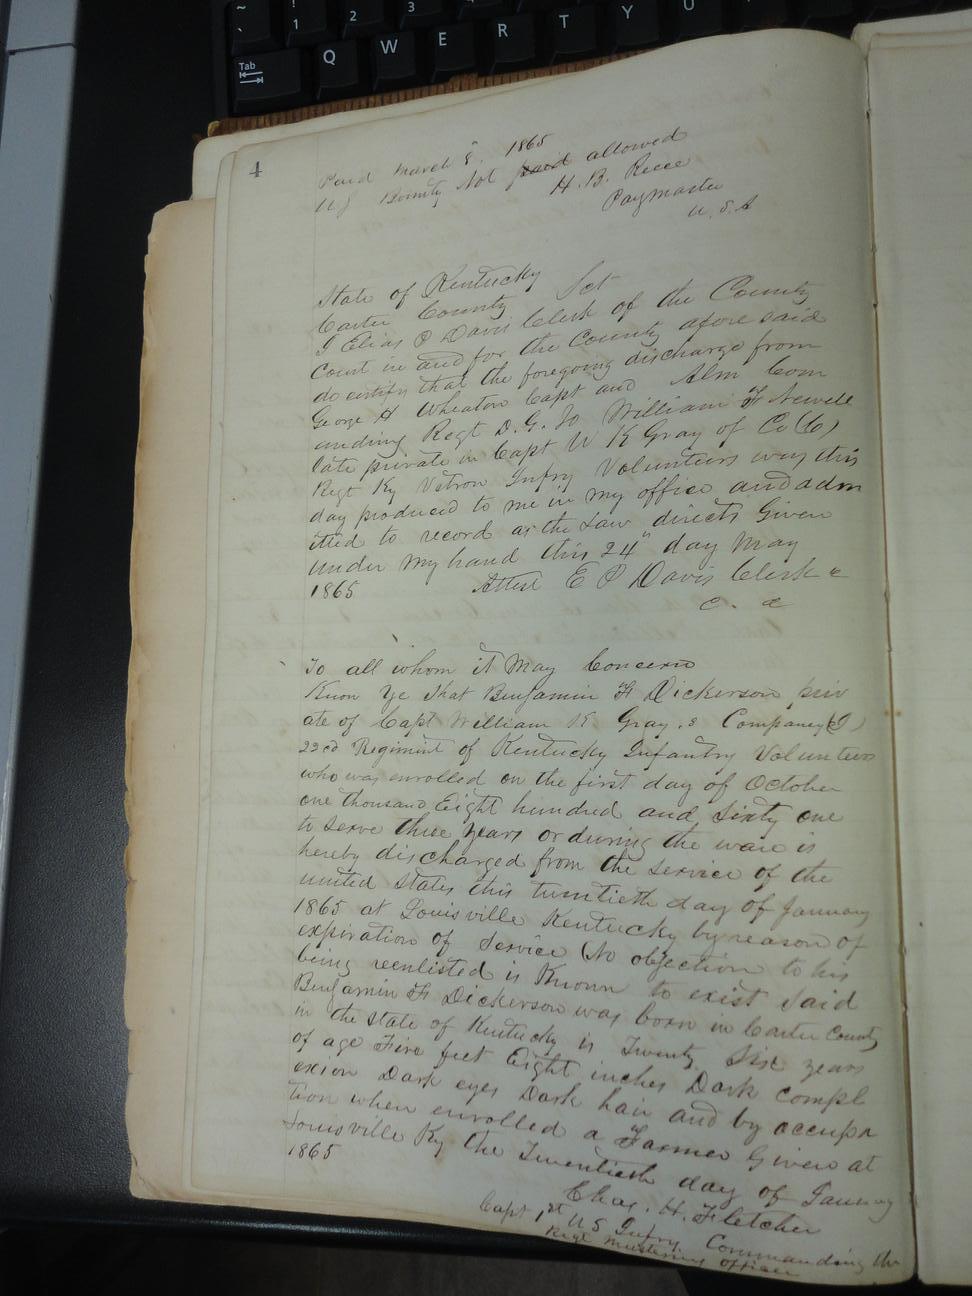 ~ ! 1 2 3 4 5 6 7
Tab Q W E R T Y U
4
Paid March 8. 1865
U S Bounty Not paid allowed
H. B. Reece
Paymaster
U. S. A
State of Kentucky
Carter County Sct
I Elias P Davis Clerk of the County
Court in and for the County afore said
do certify that the foregoing discharge from
George H Wheaton Capt and Alm Com
anding Regt D. G. To William F Newell
late private in Capt W K Gray of Co (C)
Regt Ky Vetron Infry Volunteers was this
day produced to me in my office and adm
itted to record as the Law directs Given
under my hand this 24" day May
1865 Attest E P Davis Clerk
C. C
To all whom it May Concern
Know Ye That Benjamin F Dickerson priv
ate of Capt William K Gray, s Company (I)
22nd Regiment of Kentucky Infantry Volunteers
who was enrolled on the first day of October
one thousand Eight hundred and Sixty one
to serve three years or during the ware is
hereby discharged from the service of the
united States this twentieth day of January
1865 at Louisville Kentucky by reason of
expiration of Service (No objection to his
being reenlisted is Known to exist Said
Benjamin F Dickerson was born in Carter County
in the State of Kentucky is Twenty Six years
of age Five feet Eight inches Dark compl
exion Dark eyes Dark hair and by occupa
tion when enrolled a Farmer Given at
Louisville Ky the Twentieth day of January
1865
Chas. H. Fletcher
Capt 1st U S Infry. Commanding the
Regt Mustering officer